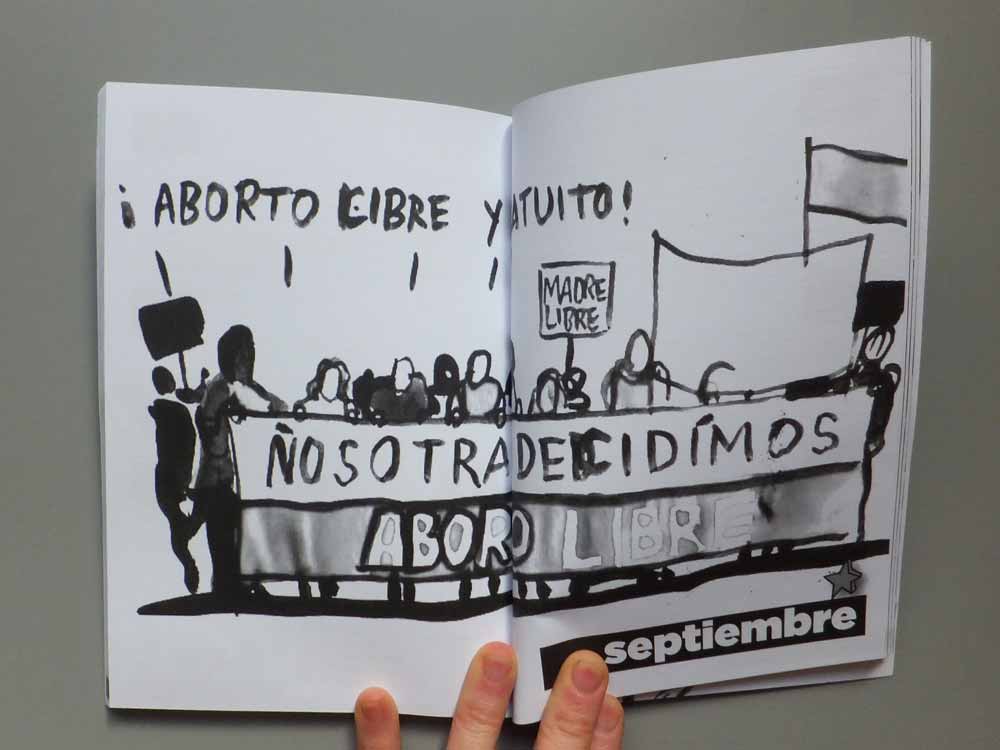 ¡ ABORTO LIBRE Y ATUITO!
MADRE
LIBRE
ÑOSOTRADECIDÍMOS
ABORO LIBRE
septiembre